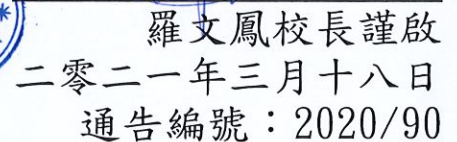 羅文鳳校長謹啟
二零二一年三月十八日
通告編號：2020/90